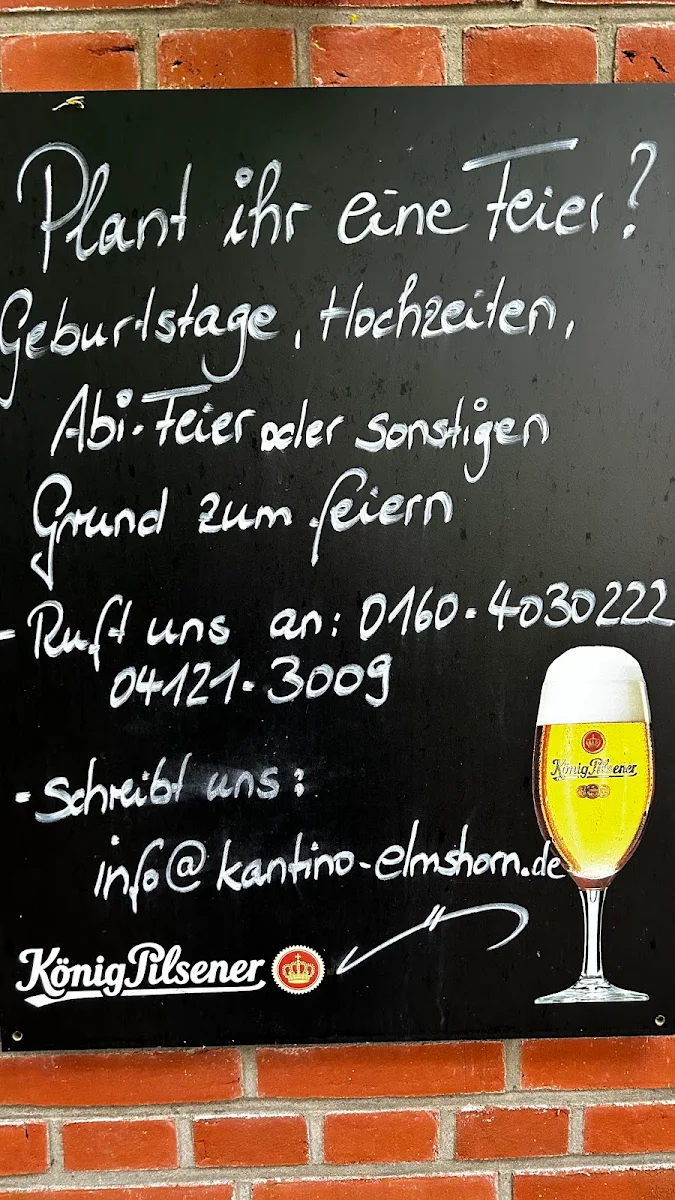 Plant ihr eine Feier?
Geburtstage, Hochzeiten,
Abi-Feier oder sonstigen
Grund zum feiern
- Ruft uns an: 0160-4030222
04121-3009
- Schreibt uns:
info@kantino-elmshorn.de
König Pilsener
König Pilsener